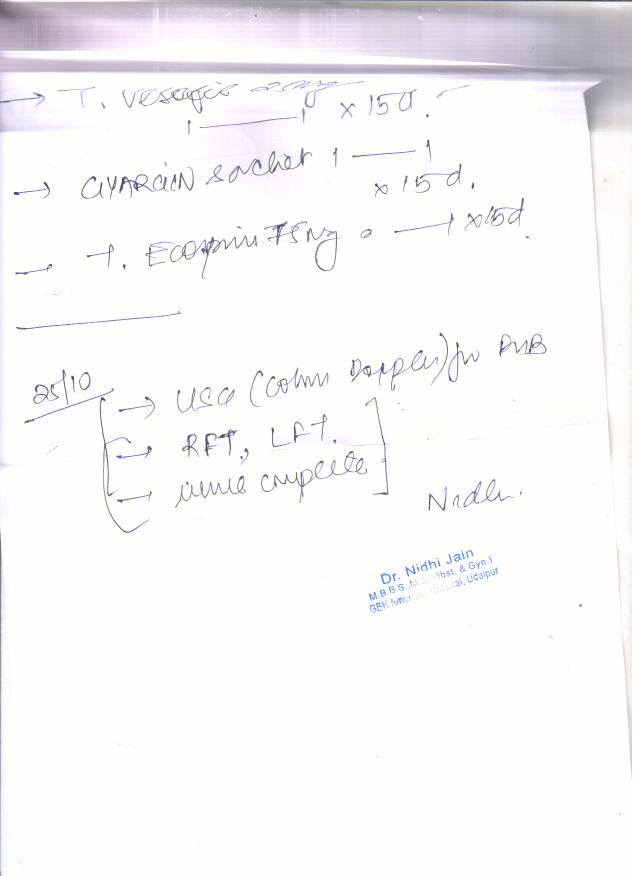 → T. 
1 — 1 x 15d.
→ sachet 1 — 1
x 15d.
→ T. Ecosprin 75mg 0 — 1 x15d.
25/10
→ USG (Colour Doppler) for
→ RFT, LFT.
→ urine complete
Nidhi.
Dr. Nidhi Jain
M.B.B.S., M.S. (Obst. & Gyn.)
GBH Udaipur